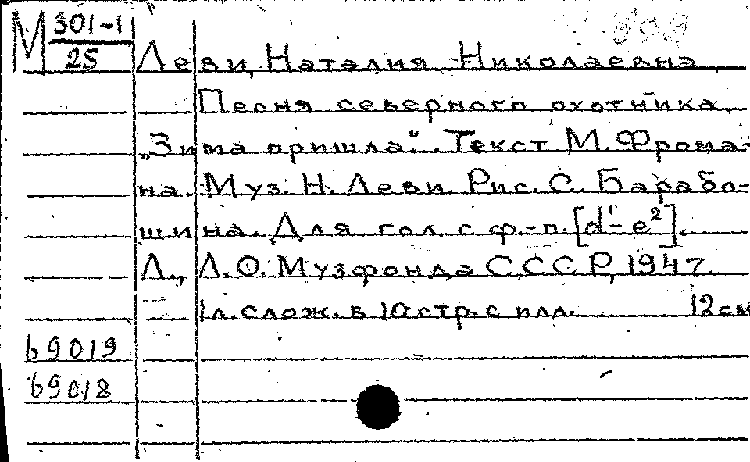 М 301-1
25
Леви, Наталия Николаевна
Песня северного охотника
„Зима пришла“. Текст М. Фрома-
на. Муз. Н. Леви. Рис. С. Барабо-
шина. Для гол. с ф.-п. [d¹-e²].
Л., Л.О. Музфонда СССР, 1947.
1л. слож. в 10 стр. с илл. 12 см
69019
69018